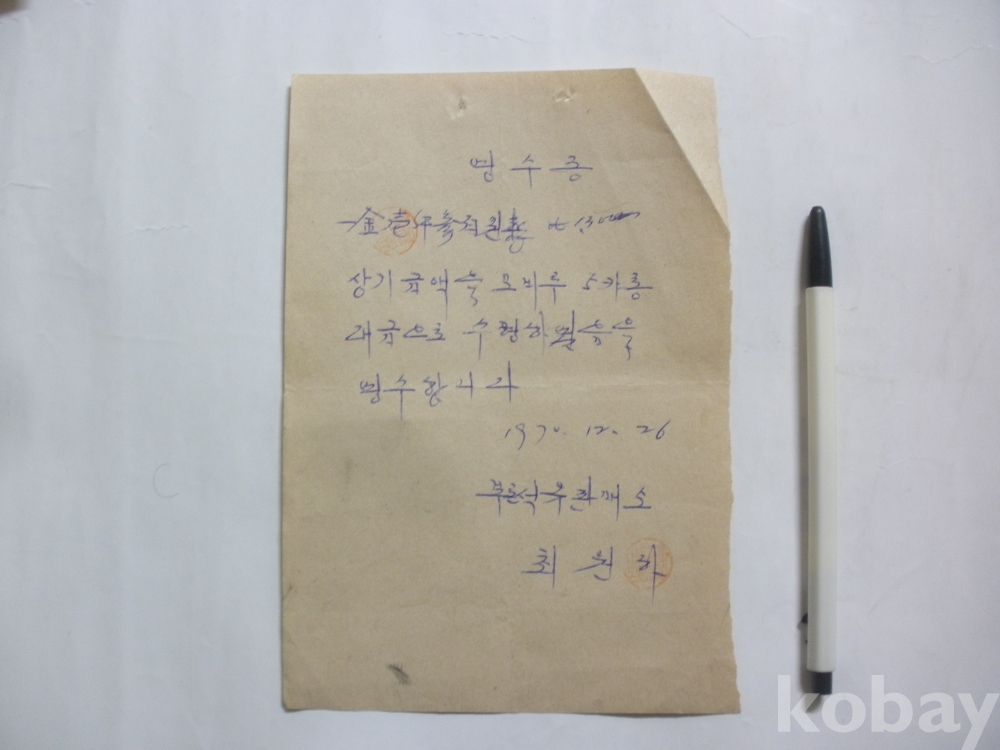 영수증
一金壱仟육백원整
상기 금액을 모비루 5카롱
대금으로 수령하였음을
영수함니다
1970. 12. 26
석유판매소
최원하
kobay